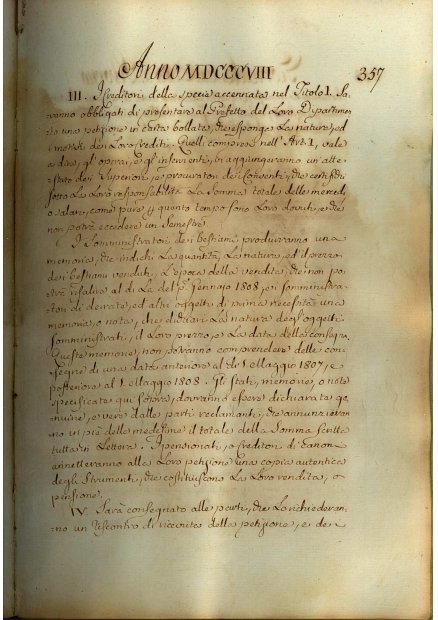 Anno MDCCCVIII 357
III. I Creditori della specie accennata nel Titolo I. Sa-
ranno obbligati di presentare al Prefetto del Loro Dipartimen-
to una petizione in carta bollata, che esponga La natura, ed
i motivi dei Loro Crediti. Quelli compresi nell'Art. 1, vale
a dire, gl'operai, e gl'inservienti, vi aggiungeranno un atte-
stato dei Superiori, o procuratori dei Conventi, che certifichi
sotto La Loro responsabilità La Somma totale delle mercedi,
o salari, come pure per quanto tempo sono Loro dovuti, e che
non potrà eccedere un Semestre.
I Somministratori dei bestiami produrranno una
memoria, che indichi La quantità, La natura, ed il prezzo
dei bestiami venduti, L'epoca della vendita, che non po-
trà risalire al di La del p.º Gennajo 1808, ei somministra-
tori di derrate, ed altri oggetti di prima necessità una
memoria, o nota, che dichiari La natura degl'oggetti
somministrati, il Loro prezzo, e La data della consegna.
Queste memorie, non potranno comprendere delle con-
segne di una data anteriore al di 1 Maggio 1807, e
posteriore al 1 Maggio 1808. Gli Stati, memorie, o note
specificate qui sopra, dovranno essere dichiarate ge-
nuine, e vere dalle parti reclamanti, che annunzieran-
no in piè delle medesime il totale della Somma scritta
tutta in Lettera. I pensionati, o Creditori di Canone
annetteranno alla Loro petizione una copia autentica
degli Strumenti, che costituiscono La Loro rendita, o
pensione.
IV. Sarà consegnato alle parti, che La richiederan-
no un riscontro di ricevuta della petizione, e de-